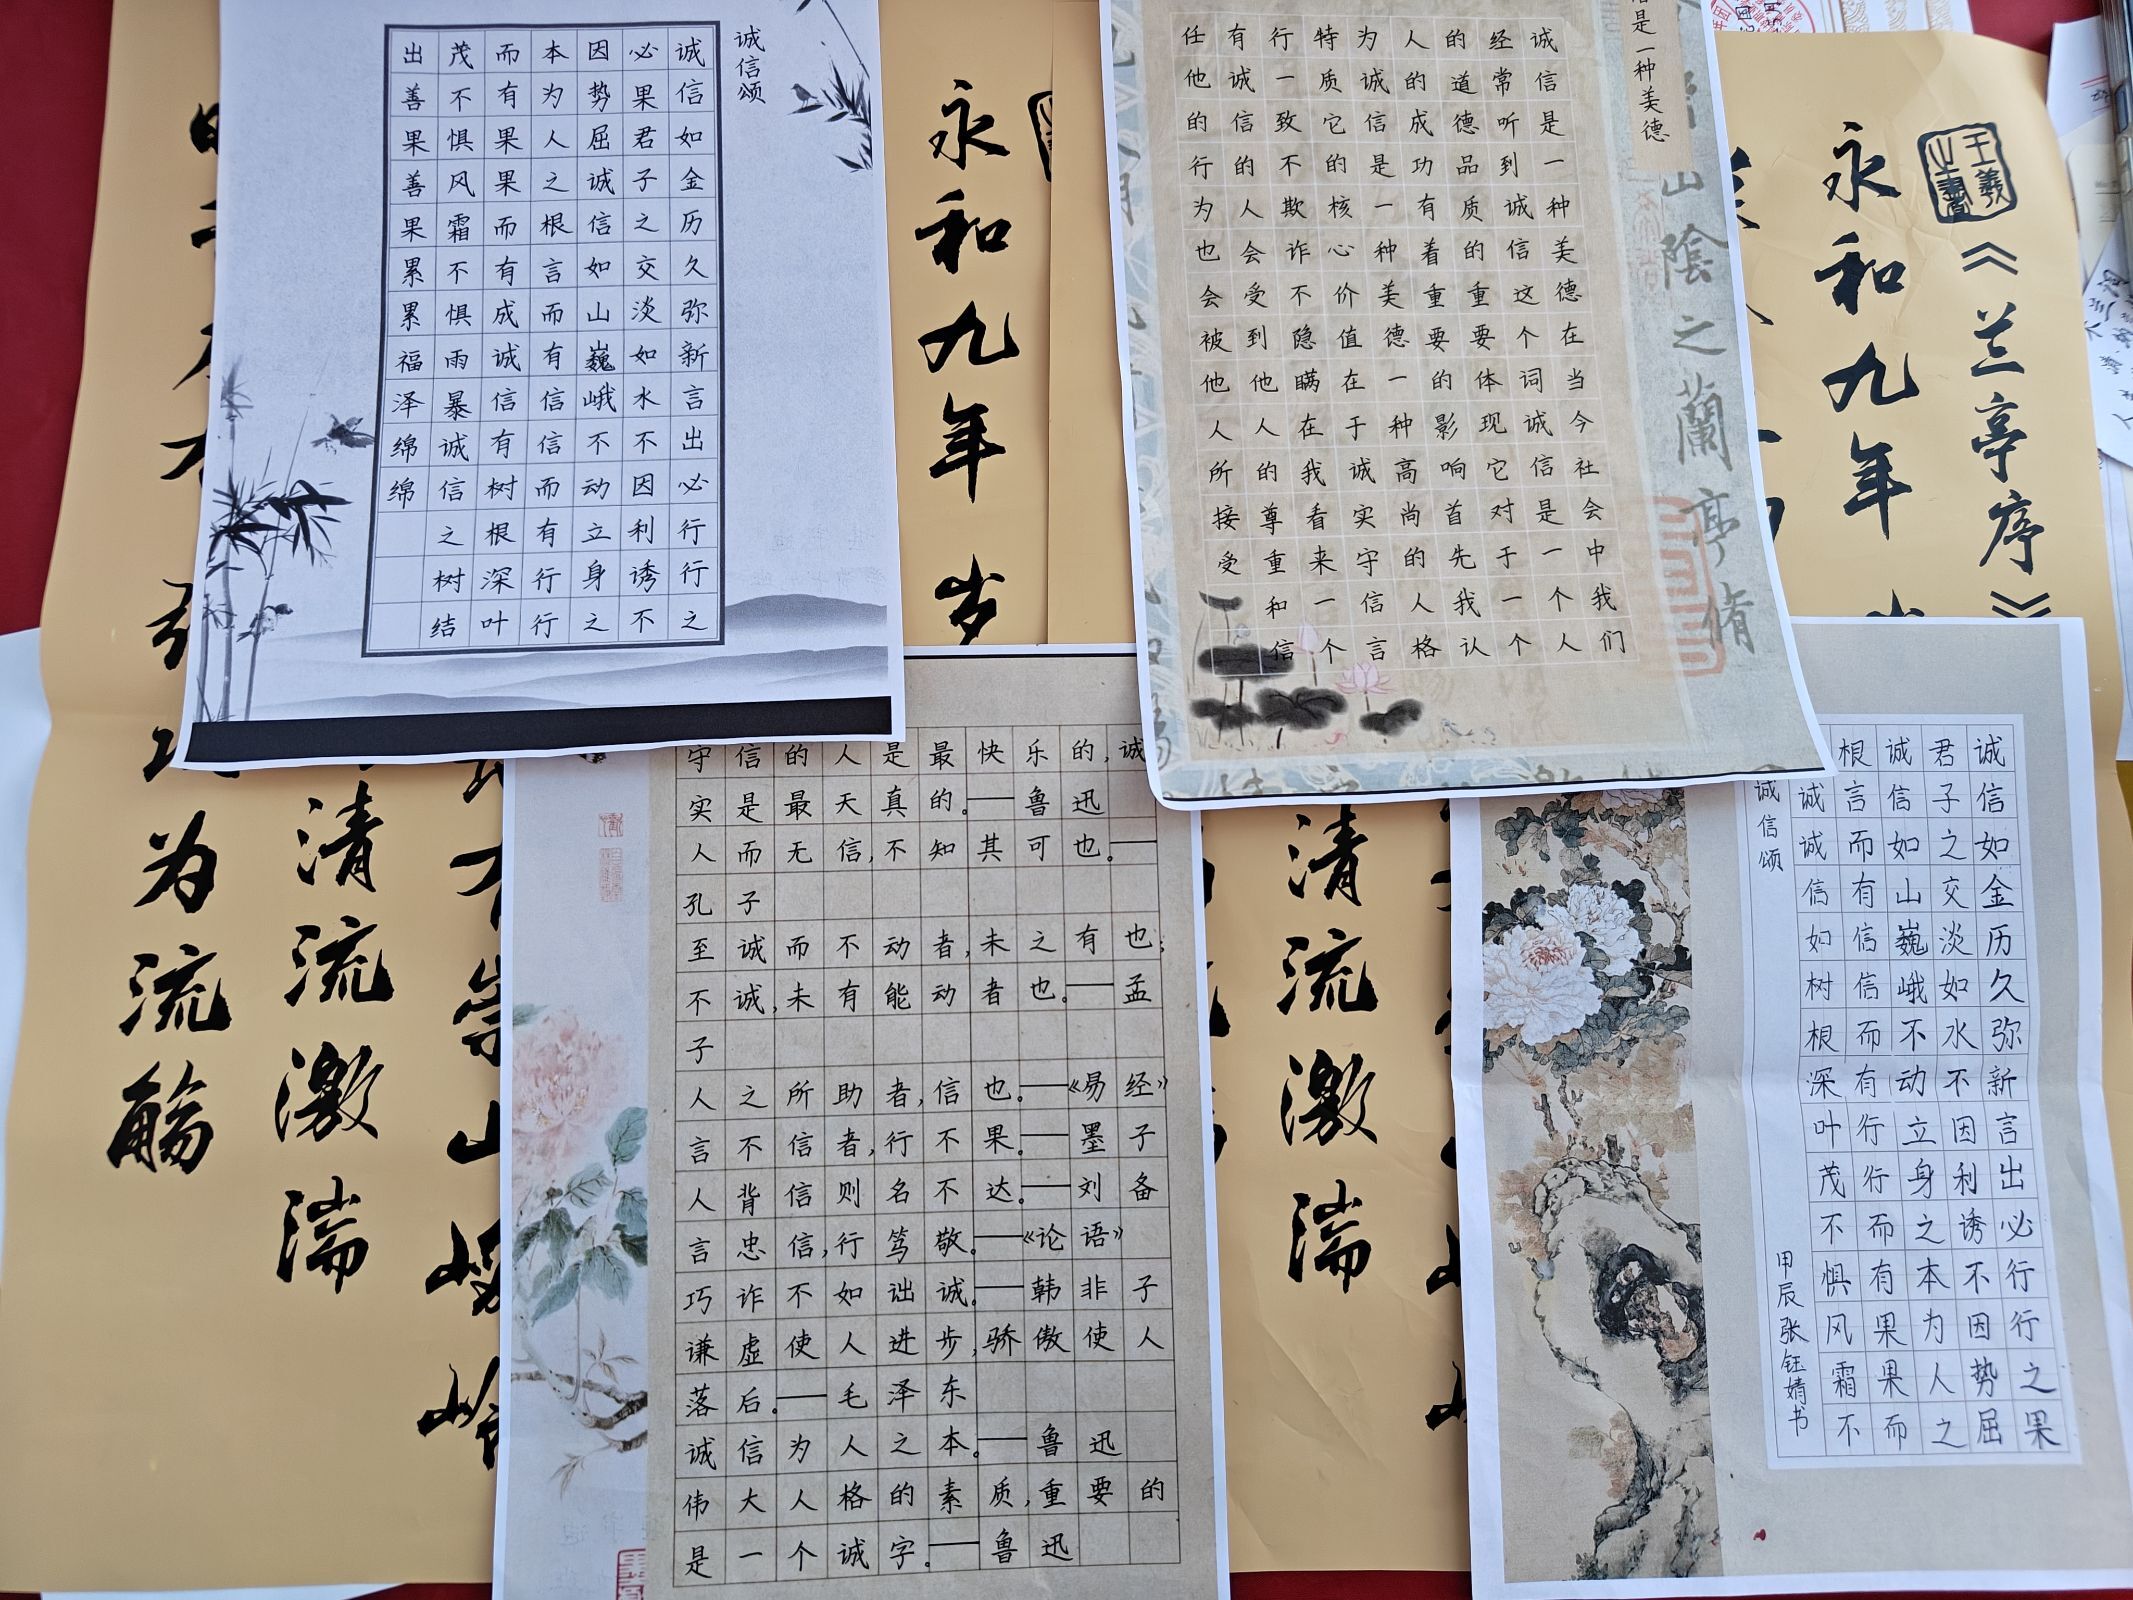 诚信颂
诚信如金历久弥新言出必行行之
必果君子之交淡如水不因利诱不
因势屈诚信如山巍峨不动立身之
本为人之根言而有信信而有行行
而有果果而有成诚信有树根深叶
茂不惧风霜不惧雨暴诚信之树结
出善果善果累累福泽绵绵
是一种美德
诚信是一种美德在当今社会中我们
经常听到诚信这个词诚信是一个人
的道德品质的重要体现它对于一个
人的成功有着重要的影响首先我认
为诚信是一种美德一种高尚的人格
特质它的核心价值在于诚实守信言
行一致不欺诈不隐瞒在我看来一个
有诚信的人会受到他人的尊重和信
任他的行为也会被他人所接受
守信的人是最快乐的,诚
实是最天真的。——鲁迅
人而无信,不知其可也。——
孔子
至诚而不动者,未之有也;
不诚,未有能动者也。——孟
子
人之所助者,信也。——《易经》
言不信者,行不果。——墨子
人背信则名不达。——刘备
言忠信,行笃敬。——《论语》
巧诈不如诎诚。——韩非子
谦虚使人进步,骄傲使人
落后。——毛泽东
诚信为人之本。——鲁迅
伟大人格的素质,重要的
是一个诚字。——鲁迅
诚信如金历久弥新言出必行行之果
君子之交淡如水不因利诱不因势屈
诚信如山巍峨不动立身之本为人之
根言而有信信而有行行而有果果而
诚诚信如树根深叶茂不惧风霜不
诚信颂
甲辰张钰婧书
王羲之书
《兰亭序》
永和九年
永和九年岁
山阴之兰亭修
清流激湍
清流激湍
为流觞